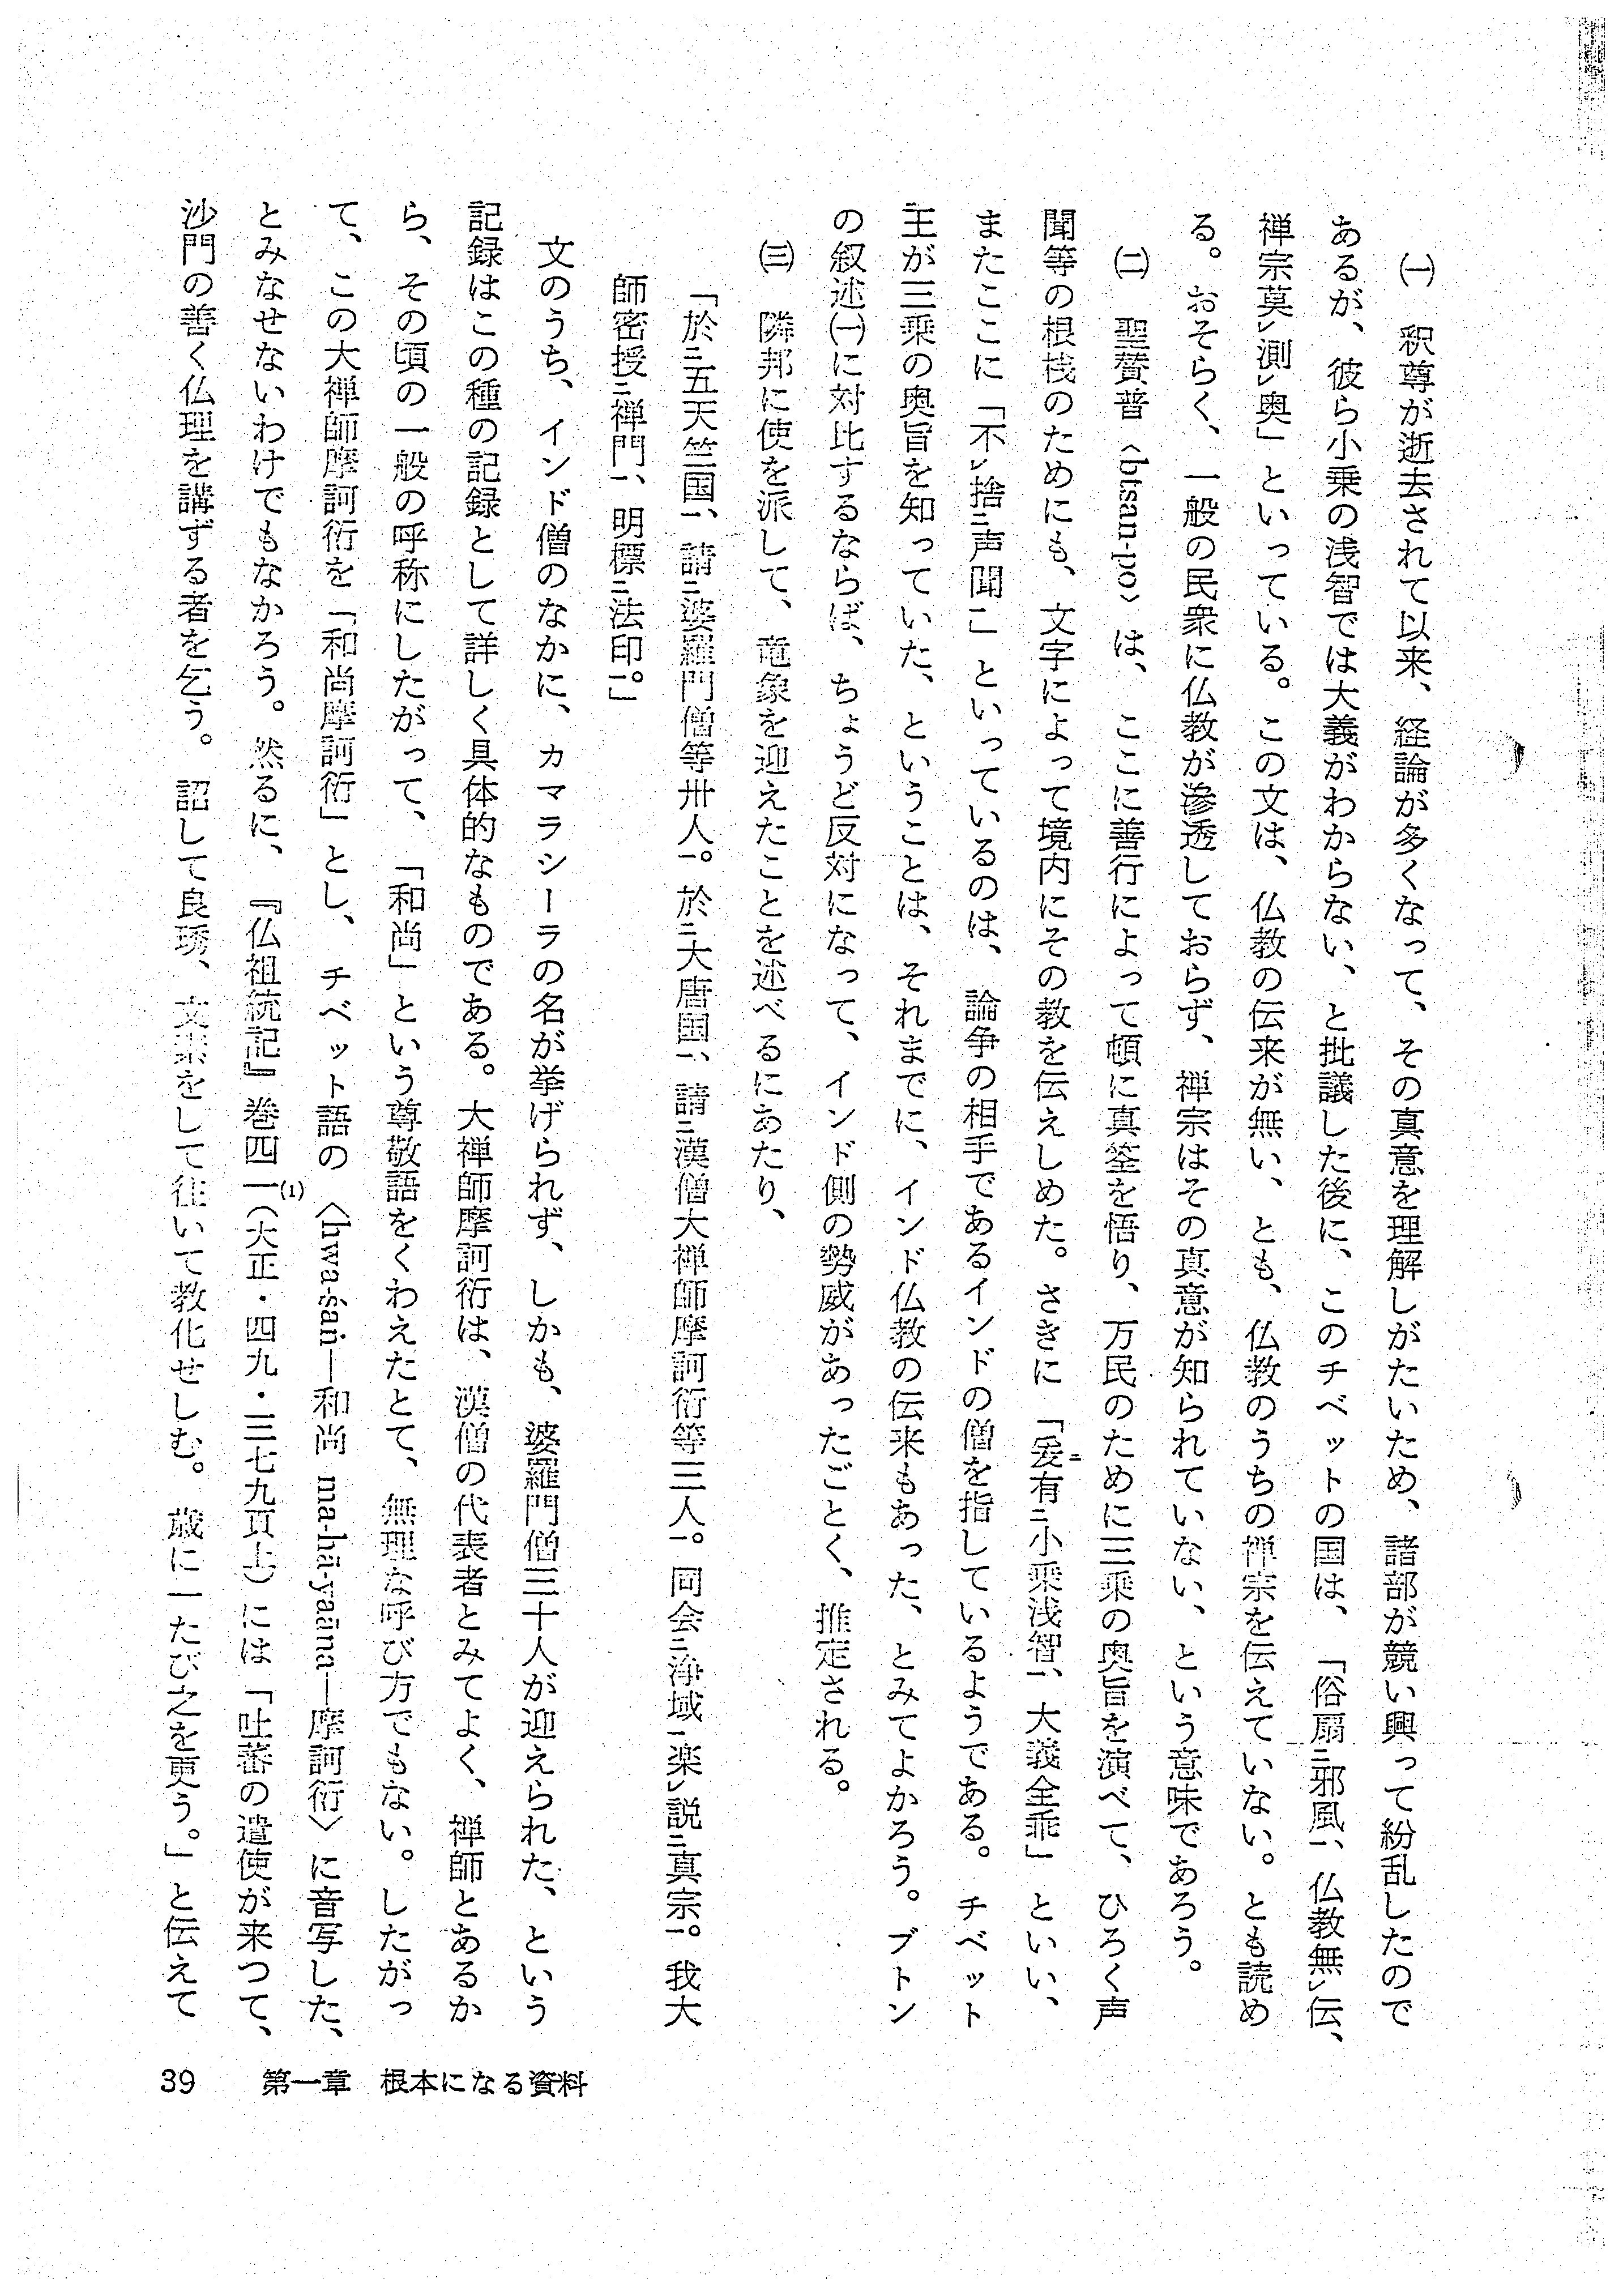 ㈠　釈尊が逝去されて以来、経論が多くなって、その真意を理解しがたいため、諸部が競い興って紛乱したので
あるが、彼ら小乗の浅智では大義がわからない、と批議した後に、このチベットの国は、「俗扇㆓邪風㆒、仏教無㆑伝、
禅宗莫㆑測㆑奥」といっている。この文は、仏教の伝来が無い、とも、仏教のうちの禅宗を伝えていない。とも読め
る。おそらく、一般の民衆に仏教が滲透しておらず、禅宗はその真意が知られていない、という意味であろう。
㈡　聖賛普〈btsan-po〉は、ここに善行によって頓に真筌を悟り、万民のために三乗の奥旨を演べて、ひろく声
聞等の根桟のためにも、文字によって境内にその教を伝えしめた。さきに「爰ニ有㆓小乗浅智㆒、大義全乖」といい、
またここに「不㆑捨㆓声聞㆒」といっているのは、論争の相手であるインドの僧を指しているようである。チベット
王が三乗の奥旨を知っていた、ということは、それまでに、インド仏教の伝来もあった、とみてよかろう。ブトン
の叙述㈠に対比するならば、ちょうど反対になって、インド側の勢威があったごとく、推定される。
㈢　隣邦に使を派して、竜象を迎えたことを述べるにあたり、
「於㆓五天竺国㆒、請㆓婆羅門僧等卅人㆒。於㆓大唐国㆒、請㆓漢僧大禅師摩訶衍等三人㆒。同会㆓浄域㆒楽㆑説㆓真宗㆒。我大
師密授㆓禅門㆒、明標㆓法印㆒。」
文のうち、インド僧のなかに、カマラシーラの名が挙げられず、しかも、婆羅門僧三十人が迎えられた、という
記録はこの種の記録として詳しく具体的なものである。大禅師摩訶衍は、漢僧の代表者とみてよく、禅師とあるか
ら、その頃の一般の呼称にしたがって、「和尚」という尊敬語をくわえたとて、無理な呼び方でもない。したがっ
て、この大禅師摩訶衍を「和尚摩訶衍」とし、チベット語の〈hwa-śaṅ—和尚 ma-hā-yaāna—摩訶衍〉に音写した、
とみなせないわけでもなかろう。然るに、『仏祖統記』巻四一(1)(大正・四九・三七九頁上)には「吐蕃の遣使が来つて、
沙門の善く仏理を講ずる者を乞う。詔して良琇、文素をして往いて教化せしむ。歳に一たび之を更う。」と伝えて
39　第一章　根本になる資料